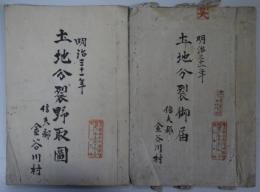 明治三十一年
土地分裂御届
信夫郡
金谷川村
明治三十一年
土地分裂野取圖
信夫郡
金谷川村